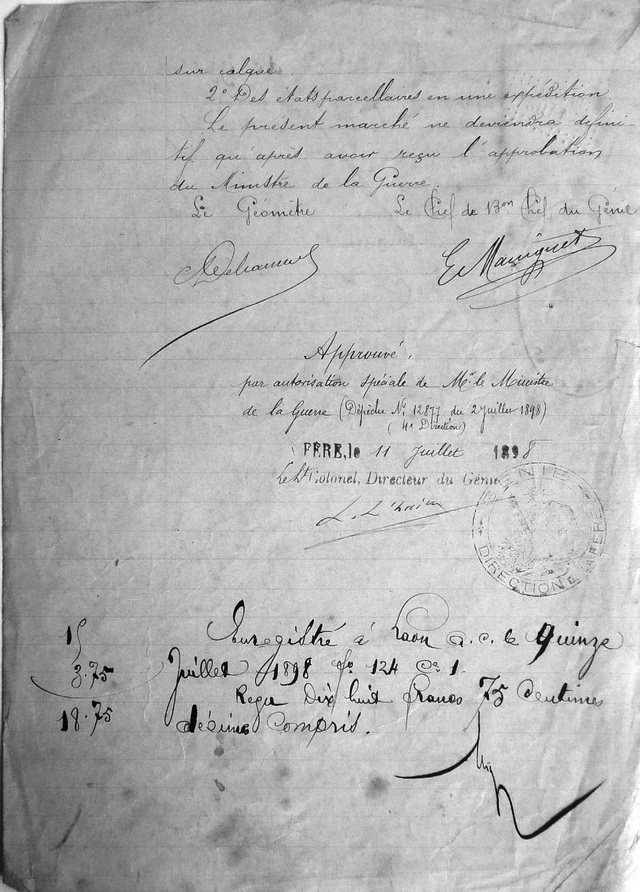 sur calque.
2° Des états parcellaires en une expédition
Le présent marché ne deviendra défini-
tif qu'après avoir reçu l'approbation
du Ministre de la Guerre.
Le Géomètre Le Chef de Bon Chef du Génie
Approuvé,
par autorisation spéciale de Mr le Ministre
de la Guerre (Dépêche No 12877 du 2 juillet 1898)
(4e Direction)
FÈRE, le 11 Juillet 1898
Le Lt Colonel, Directeur du Génie
GENIE
DIRECTION DE LA FERE
15 Enregistré à Laon a.c. le Quinze
3.75 Juillet 1898 fo 124 Ce 1.
Reçu Dix huit francs 75 Centimes
18.75 décimes Compris.